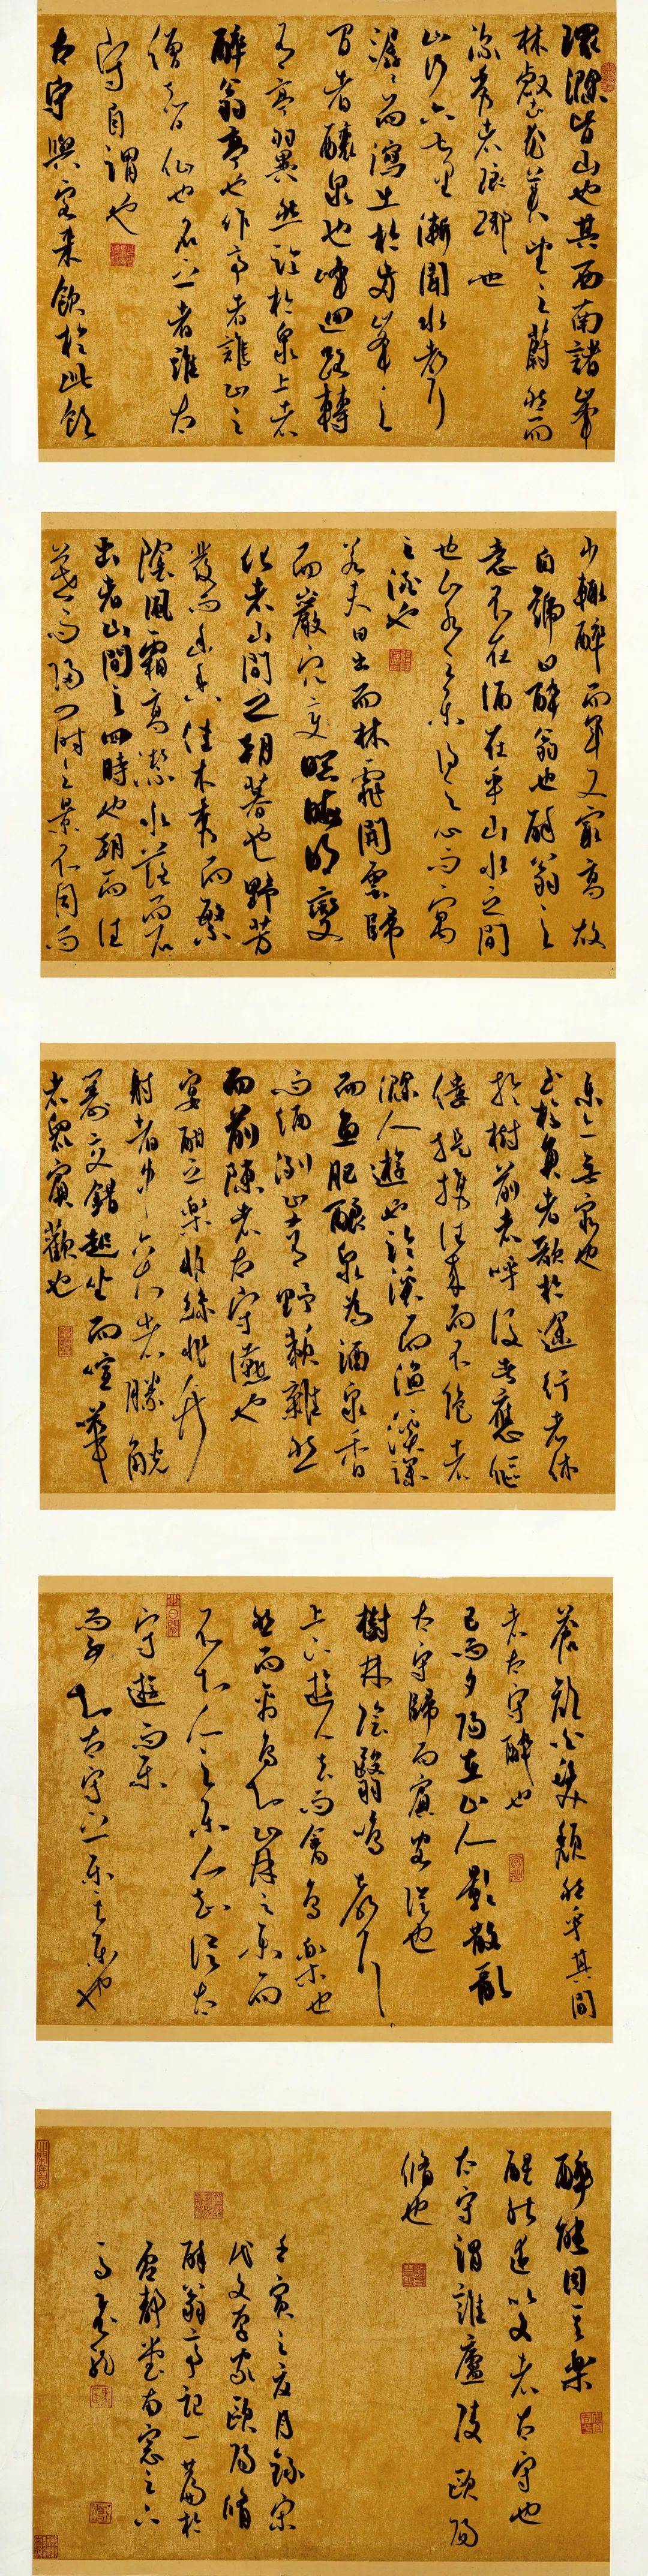 環滁皆山也其西南諸峰
林壑尤美望之蔚然而
深秀者琅琊也
山行六七里漸聞水聲
潺潺而瀉出於兩峰之
間者釀泉也峰迴路轉
有亭翼然臨於泉上者
醉翁亭也作亭者誰山之
僧智仙也名之者誰太
守自謂也
太守與客來飲於此飲
少輒醉而年又最高故
自號曰醉翁也醉翁之
意不在酒在乎山水之間
也山水之樂得之心而寓
之酒也
若夫日出而林霏開雲歸
而巖穴暝晦明變
化者山間之朝暮也野芳
發而幽香佳木秀而繁
陰風霜高潔水落而石
出者山間之四時也朝而往
暮而歸四時之景不同而
樂亦無窮也
至於負者歌於途行者休
於樹前者呼後者應傴
僂提攜往來而不絕者
滁人遊也臨溪而漁溪深
而魚肥釀泉為酒泉香
而酒洌山肴野蔌雜然
而前陳者太守讌也
宴酣之樂非絲非竹
射者中弈者勝觥
籌交錯起坐而喧嘩
者眾賓歡也
蒼顏白髮頹然乎其間
者太守醉也
已而夕陽在山人影散亂
太守歸而賓客從也
樹林陰翳鳴聲
上下遊人去而禽鳥樂也
然而禽鳥知山林之樂而
不知人之樂人知從太
守遊而樂
而不知太守之樂其樂也
醉能同其樂
醒能述以文者太守也
太守謂誰廬陵歐陽
脩也
壬寅之夏月錄宋
代文學家歐陽脩
醉翁亭記一篇於
堂南窗之下